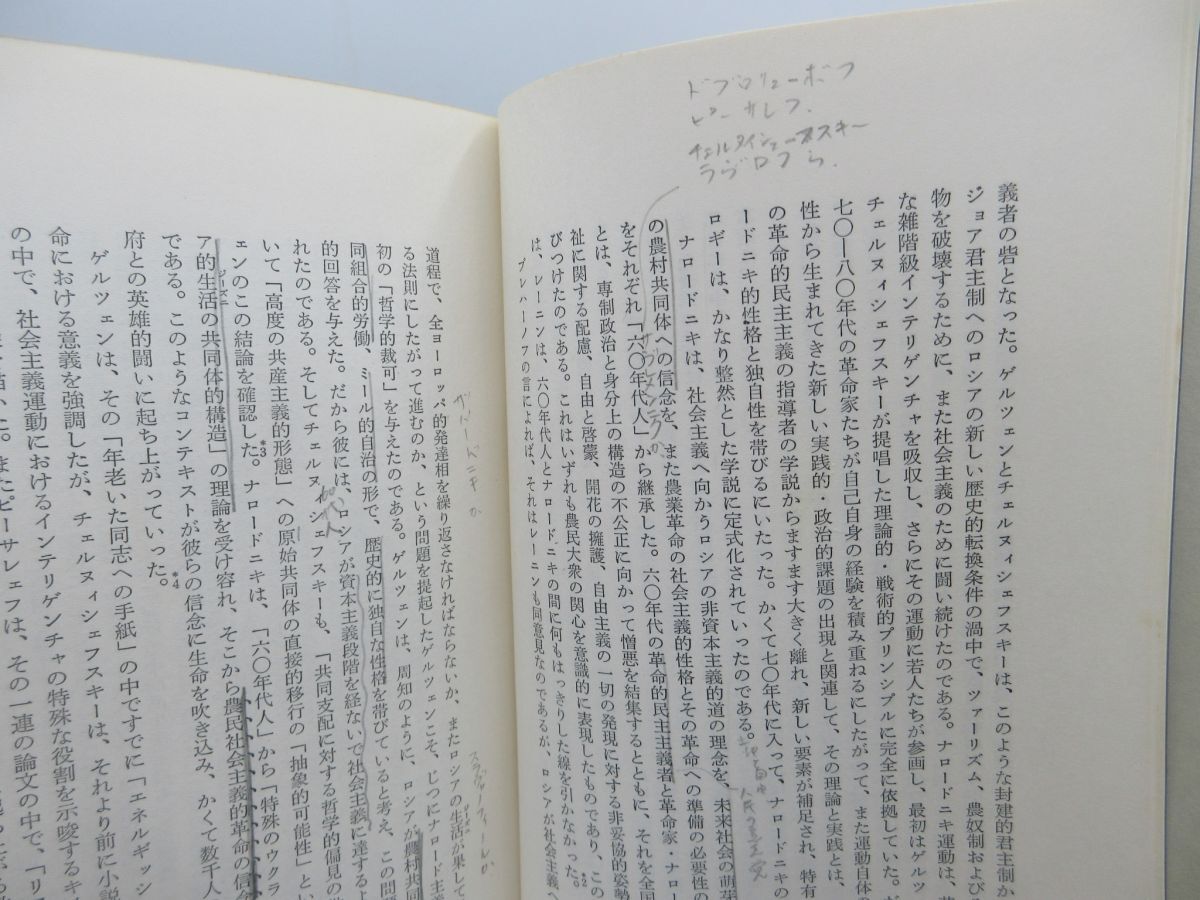 ドブロリューボフ
ピーサレフ、
チェルヌイシェーフスキー
ラヴロフら、
義者の砦となった。ゲルツェンとチェルヌィシェフスキーは、このような封建的君主制か
ジョア君主制へのロシアの新しい歴史的転換条件の渦中で、ツァーリズム、農奴制および
物を破壊するために、また社会主義のために闘い続けたのである。ナロードニキ運動は、
な雑階級インテリゲンチャを吸収し、さらにその運動に若人たちが参画し、最初はゲルツ
チェルヌィシェフスキーが提唱した理論的・戦術的プリンシプルに完全に依拠していた。が
七〇―八〇年代の革命家たちが自己自身の経験を積み重ねるにしたがって、また運動自体の
性から生まれてきた新しい実践的・政治的課題の出現と関連して、その理論と実践とは、
の革命的民主主義の指導者の学説からますます大きく離れ、新しい要素が補足され、特有
ードニキ的性格と独自性を帯びるにいたった。かくて七〇年代に入って、ナロードニキの
ロギーは、かなり整然とした学説に定式化されていったのである。
ナロードニキは、社会主義へ向かうロシアの非資本主義的道の理念を、未来社会の萌芽
の農村共同体への信念を、また農業革命の社会主義的性格とその革命への準備の必要性の
をそれぞれ「六〇年代人」から継承した。六〇年代の革命的民主主義者と革命家・ナロー
とは、専制政治と身分上の構造の不公正に向かって憎悪を結集するとともに、それを全国
祉に関する配慮、自由と啓蒙、開花の擁護、自由主義の一切の発現に対する非妥協的姿勢
びつけたのである。これはいずれも農民大衆の関心を意識的に表現したものであり、この
は、レーニンは、六〇年代人とナロードニキの間に何もはっきりした線を引かなかった。*2
プレハーノフの言によれば、それはレーニンも同意見なのであるが、ロシアが社会主義へ
道程で、全ヨーロッパ的発達相を繰り返さなければならないか、またロシアの生活が果して
る法則にしたがって進むのか、という問題を提起したゲルツェンこそ、じつにナロード主
初の「哲学的裁可」を与えたのである。ゲルツェンは、周知のように、ロシアが農村共
同組合的労働、ミール的自治の形で、歴史的に独自な性格を帯びていると考え、この問
的回答を与えた。だから彼には、ロシアが資本主義段階を経ないで社会主義に達するよ
れたのである。そしてチェルヌィシェフスキーも、「共同支配に対する哲学的偏見の
いて「高度の共産主義的形態」への原始共同体の直接的移行の「抽象的可能性」と、
ェンのこの結論を確認した。*3ナロードニキは、「六〇年代人」から「特殊のウクラ
ア的生活の共同体的構造」の理論を受け容れ、そこから農民社会主義的革命の信念
である。このようなコンテキストが彼らの信念に生命を吹き込み、かくて数千人
府との英雄的闘いに起ち上がっていった。*4
ゲルツェンは、その「年老いた同志への手紙」の中ですでに「エネルギッシ
命における意義を強調したが、チェルヌィシェフスキーは、それより前に小説
の中で、社会主義運動におけるインテリゲンチャの特殊な役割を示唆するキ
た。またピーサレフは、その一連の論文の中で、「リ